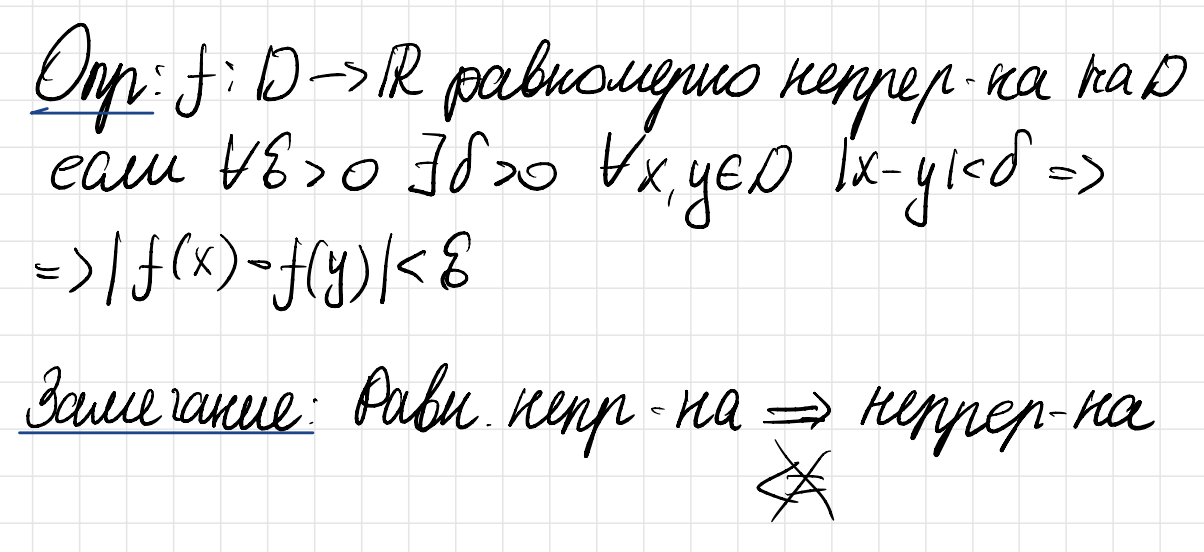 Опр: f: D -> ℝ равномерно непрер-на на D
если ∀ε > 0 ∃δ > 0 ∀x, y ∈ D |x - y| < δ =>
=> |f(x) - f(y)| < ε
Замечание: Равн. непр-на => непрер-на
<≠